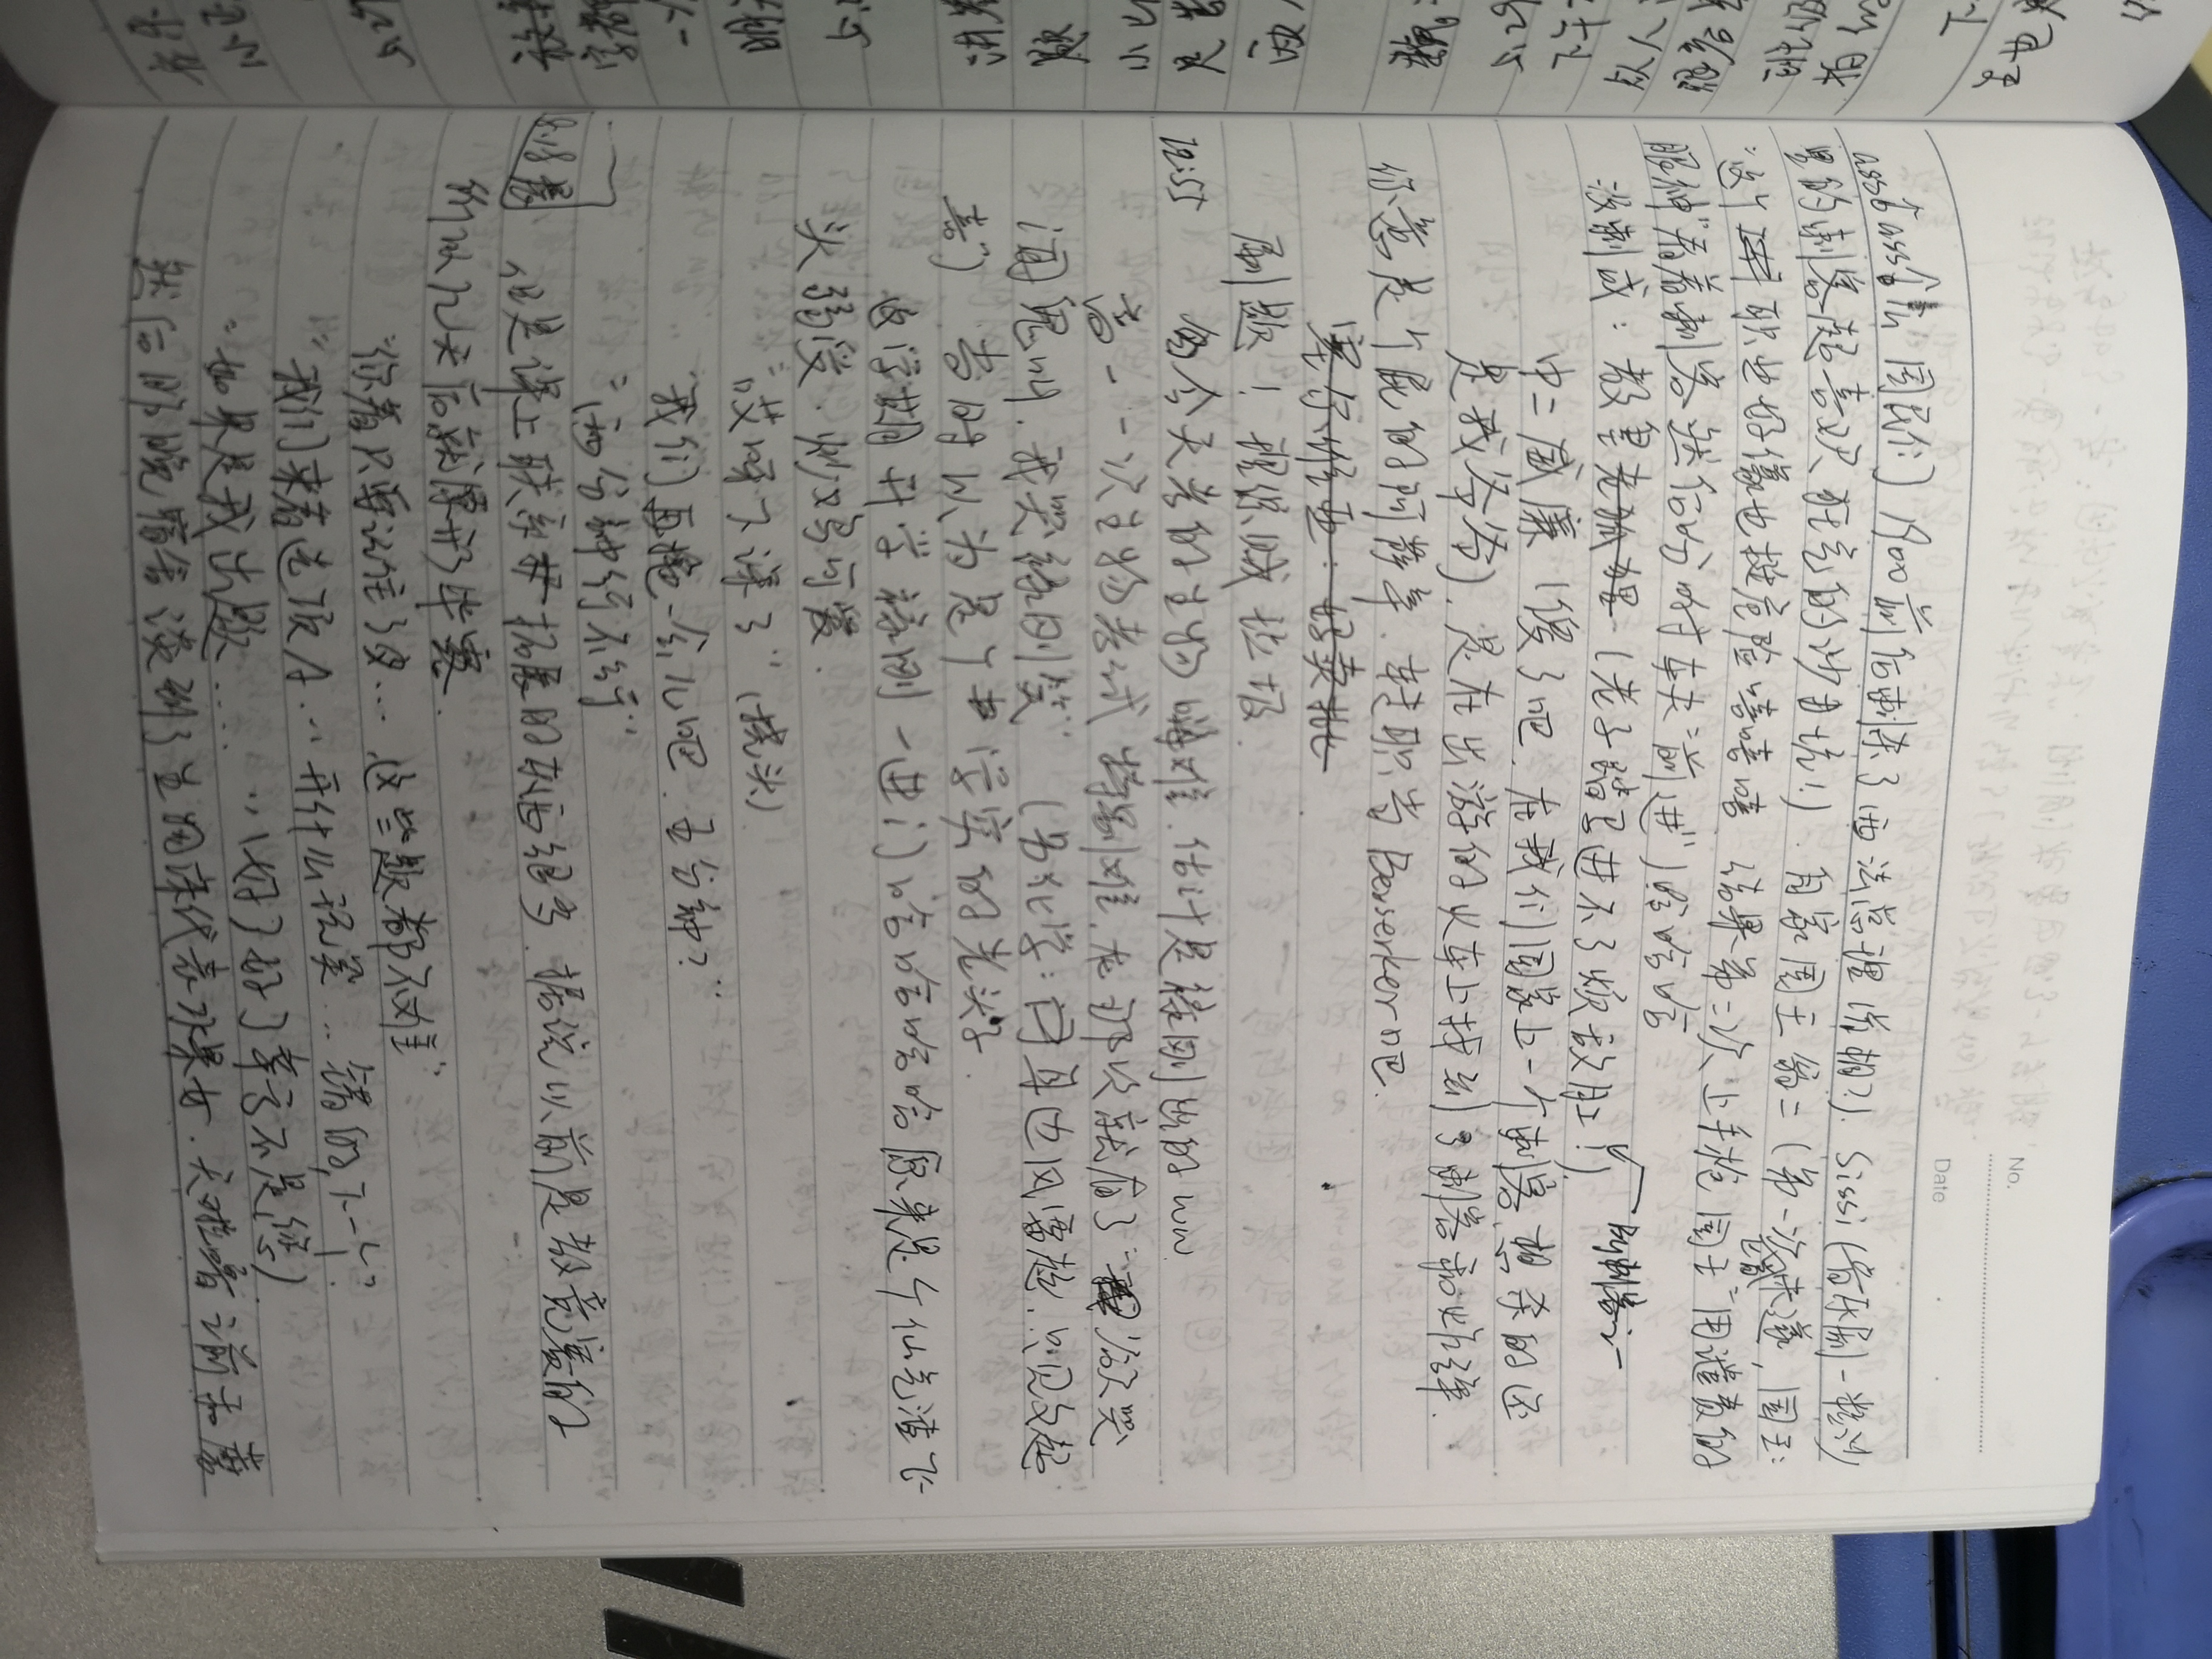 No.
Date
国民们 1900前后刺杀了西法总理(首相?). Sissi(音乐剧一粒沙
里的刺客超喜欢 狂气的沙由坑!). 自家国王翁二(第一次未遂, 国王:
"这个职业好像也挺危险嘻嘻嘻. 结果第二次上手枪 国王"用谴责的
眼神"看着刺客然后吩咐车夫"前进")哈哈哈
没刺成: 教皇老狐狸(老子踏马进不了梵蒂冈!). By刺客之一
中二威廉(傻了吧, 在我们国家上一个刺客想杀的还
是我爷爷). 是在出游的火车上找到了刺客和炸弹.
你急是个屁的阿萨辛. 转职当Berserker吧.
塞尔维亚: 好卖批
刷题! 理综贼垃圾.
12:55 今天考的生物嗨难. 估计是禄刚出的ww.
高一一次生物考试特别难. 在那次就有了"欲哭
闻鬼叫, 我哭禄刚笑" (另化学: 耳边风雷起, 只见文起
喜") 当时以为是个学究的老头子.
这学期开学禄刚一进门哈哈哈哈原来是个仙气渣飞
头弱受. 炒鸡可爱.
"哎呀下课了"(挠头)
"我们再拖一会儿吧. 五分钟?"
"两分钟行不行"
9.18晨 但是课上联系拓展的东西很多. 据说以前是教竞赛的
所以几天后就原形毕露.
"你看只要记住了... 这些题都不难"
"我们来看选项A... 开什么玩笑... 错的, 下一个?
"如果是我出题...... "(好了好了幸亏不是您).
然后昨晚宿舍谈到了生物课代表水果女. 天啦噜之前和蘑